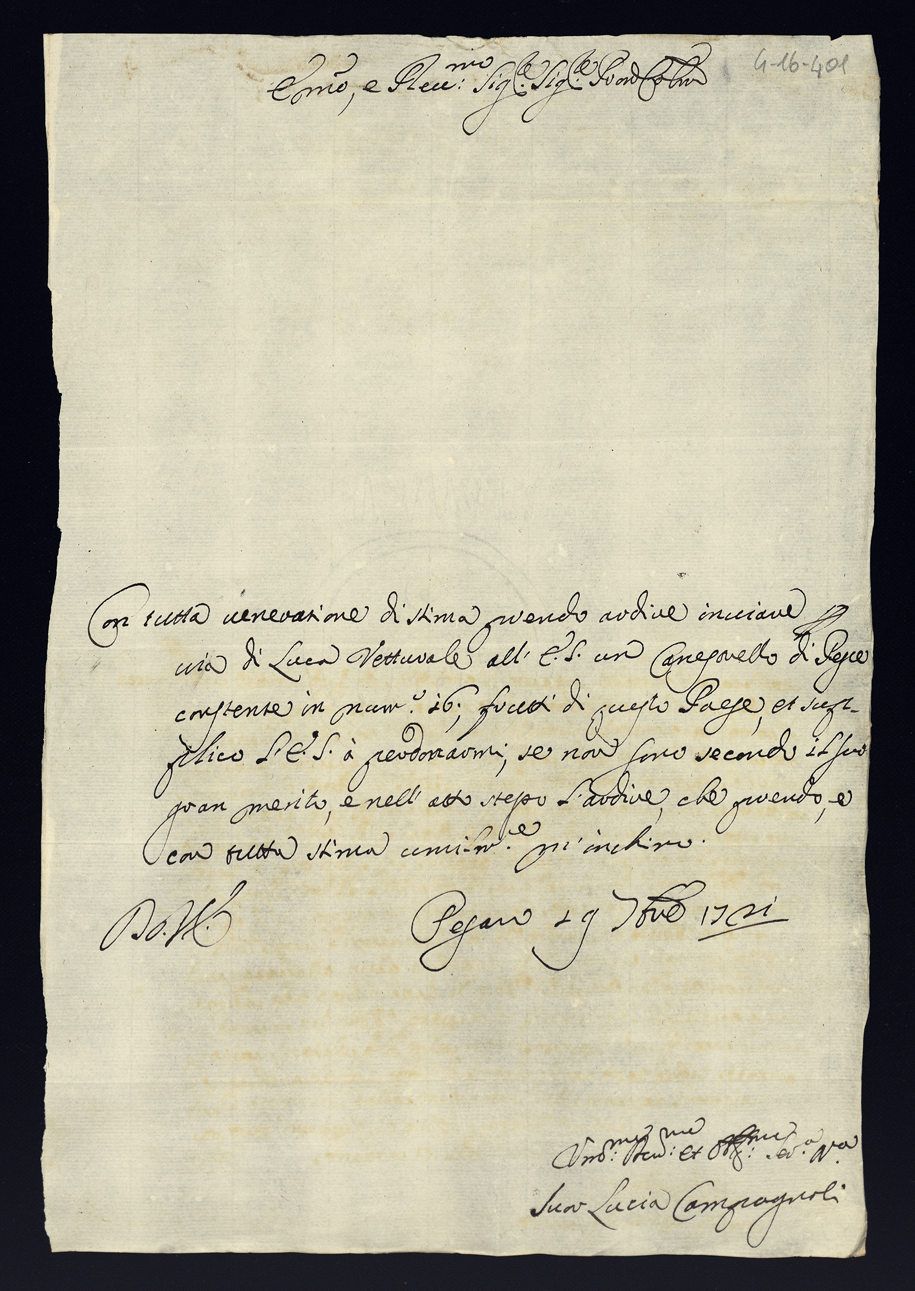 G-16-401
Emo, e Reu:mo Sig:re Sig:re
Con tutta veneratione di stima prendo ardire inviare P
via di Luca Vetturale all' E.S. un Canestrello di Pesce
constente in num:o 16; frutti di questo Paese, et sup-
plico L'E.S. à perdonarmi, se non sono secondo il suo
gran merito, e nell' atto stesso L'ardire, che prendo, e
con tutta stima umilm:e m' inchino.
Pesaro 19 9bre 1721
Vm:ma Deu:ma et Obb:ma Ser:a N.a
Suor Lucia Campagnoli